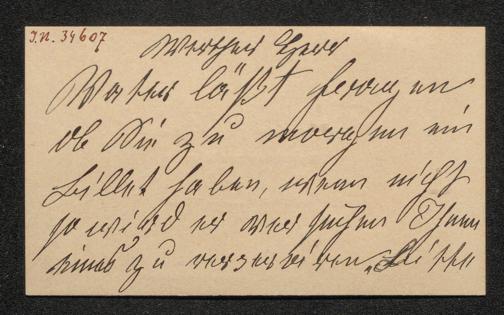 I.N. 34607
Werther Herr
Vater läßt fragen
ob Sie zu morgen ein
Billet haben, wenn nicht
so wird er versuchen Ihnen
eines zu reservieren. Bitte